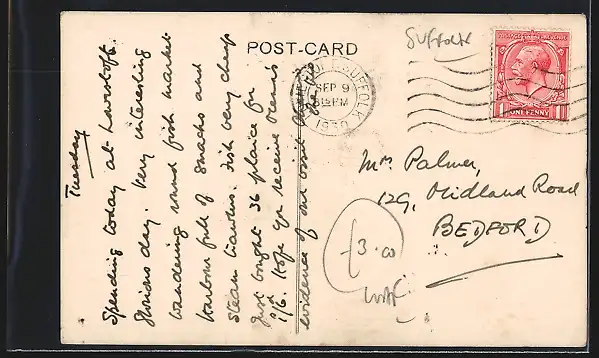 POST-CARD
Suffolk
SUFFOLK
SEP 9
PM
1930
ONE PENNY
Tuesday
Spending today at Lowestoft.
Glorious day. Very interesting
wandering round fish market
harbour full of smacks and
steam trawlers. Fish very cheap
Just bought 36 plaice for
1/6. Hope you receive
evidence of our visit
Mrs Palmer,
129, Midland Road
BEDFORD
£3.00